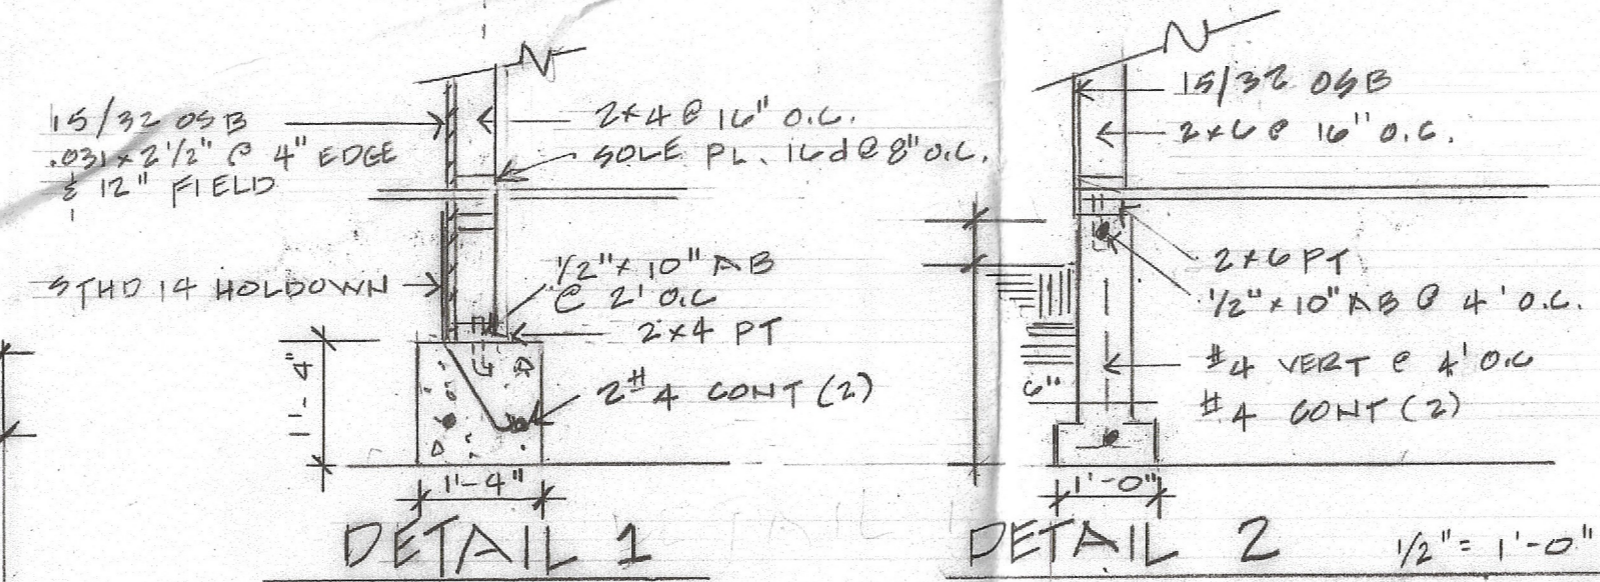 15/32 OSB
.031 x 2 1/2" @ 4" EDGE
& 12" FIELD
2x4 @ 16" O.C.
SOLE PL. 16d @ 8" O.C.
STHD 14 HOLDOWN
1/2" x 10" AB
@ 2' O.C
2x4 PT
2#4 CONT (2)
1'-4"
1'-4"
DETAIL 1
15/32 OSB
2x6 @ 16" O.C.
2x6 PT
1/2" x 10" AB @ 4' O.C.
#4 VERT @ 4' O.C
#4 CONT (2)
6"
1'-0"
DETAIL 2
1/2" = 1'-0"